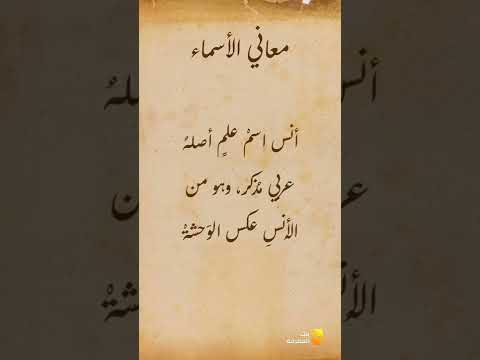 معاني الأسماء
أنس اسمْ علمٍ أصلهُ
عربي مُذكر، وهو من
الأنسِ عكس الوَحشةْ
بنك
المعرفة